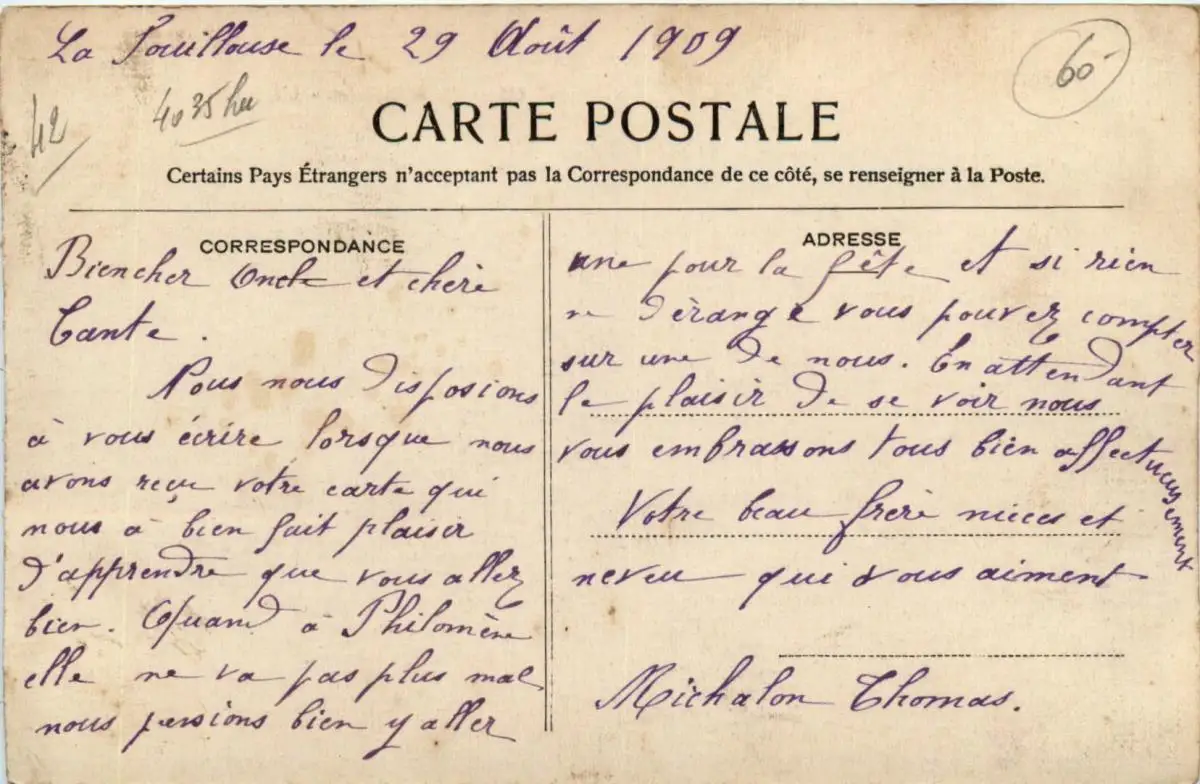 La Fouillouse le 29 Août 1909
60-
42
4035
CARTE POSTALE
Certains Pays Étrangers n'acceptant pas la Correspondance de ce côté, se renseigner à la Poste.
CORRESPONDANCE
Biencher Oncle et chère
Tante.
Nous nous disposions
à vous écrire lorsque nous
avons reçu votre carte qui
nous à bien fait plaisir
d'apprendre que vous allez
bien. Quand à Philomène
elle ne va pas plus mal
nous pensions bien y aller
ADRESSE
une pour la fête et si rien
ne dérange vous pouvez compter
sur une de nous. En attendant
le plaisir de se voir nous
vous embrassons tous bien affectueusement
Votre beau frère nièces et
neveu qui vous aiment
Michalon Thomas.